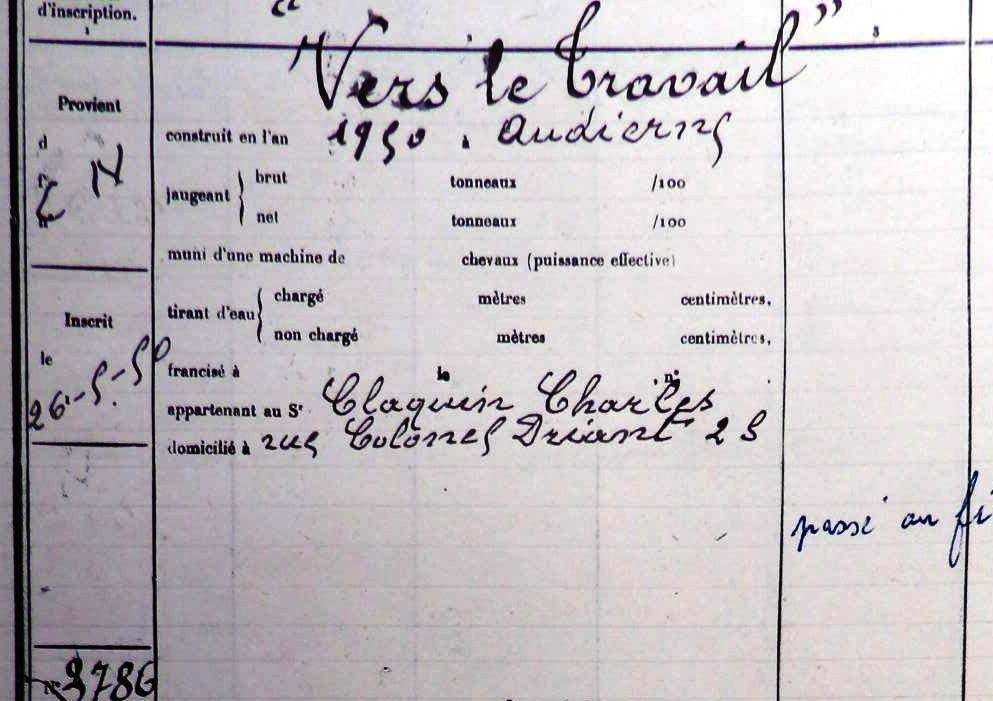 d'inscription.
"Vers le Travail"
3
Provient
d
construit en l'an 1950 à Audierne
N
jaugeant { brut tonneaux /100
net tonneaux /100
muni d'une machine de chevaux (puissance effective)
tirant d'eau { chargé mètres centimètres,
non chargé mètres centimètres,
Inscrit
le 26-5-50
francisé à le n°
appartenant au Sr Claquin Charles
domicilié à rue Colonel Driant 25
passé au fi
N° 3786